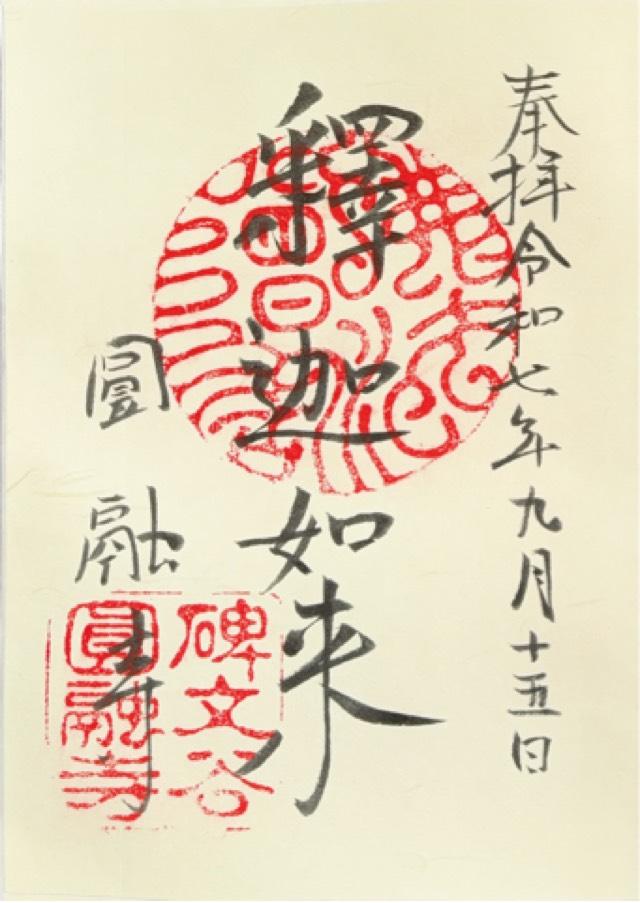 奉拝令和七年九月十五日
釋迦如来
圓融寺
碑文谷
圓融寺